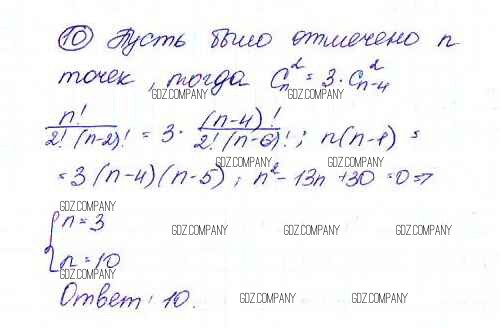 10 Пусть было отмечено n
точек, тогда C_n^2 = 3 · C_{n-4}^2
GDZ.COMPANY GDZ.COMPANY
n! / 2!(n-2)! = 3 · (n-4)! / 2!(n-6)! ; n(n-1) =
GDZ.COMPANY GDZ.COMPANY GDZ.COMPANY
= 3(n-4)(n-5); n² - 13n + 30 = 0 =>
GDZ.COMPANY GDZ.COMPANY GDZ.COMPANY
GDZ.COMPANY
{ n = 3
GDZ.COMPANY GDZ.COMPANY GDZ.COMPANY
n = 10
GDZ.COMPANY
Ответ: 10.
GDZ.COMPANY GDZ.COMPANY